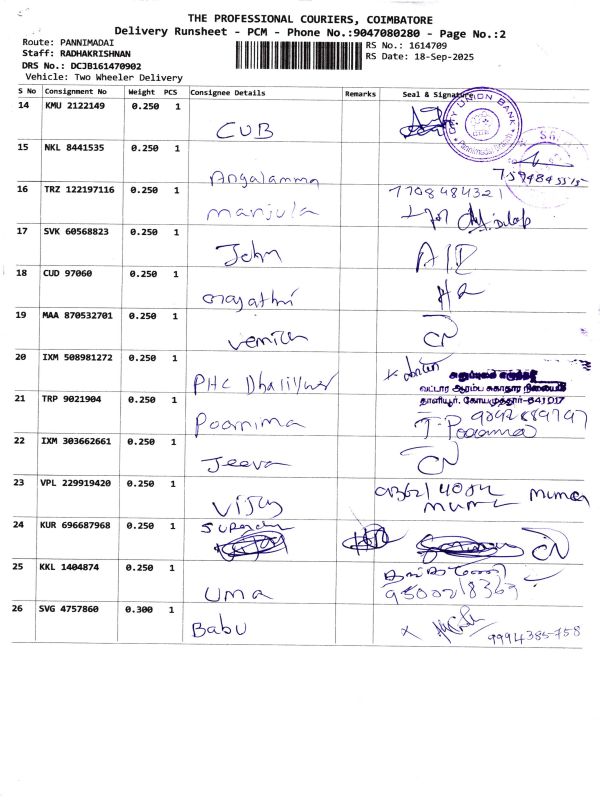 THE PROFESSIONAL COURIERS, COIMBATORE
Delivery Runsheet - PCM - Phone No.:9047080280 - Page No.:2
Route: PANNIMADAI
RS No.: 1614709
Staff: RADHAKRISHNAN
RS Date: 18-Sep-2025
DRS No.: DCJB161470902
Vehicle: Two Wheeler Delivery
S No Consignment No Weight PCS Consignee Details Remarks Seal & Signature
14 KMU 2122149 0.250 1 CUB CITY UNION BANK
15 NKL 8441535 0.250 1 Angalamma
16 TRZ 122197116 0.250 1 manjula 7708484321
17 SVK 60568823 0.250 1 John
18 CUD 97060 0.250 1
19 MAA 870532701 0.250 1
20 IXM 508981272 0.250 1 PHC Dhaliyur
வட்டார ஆரம்ப சுகாதார நிலையம்
தாளியூர், கோயமுத்தூர்-641017
21 TRP 9021904 0.250 1 Poornima 9092889797
22 IXM 303662661 0.250 1 Jeeva CN
23 VPL 229919420 0.250 1 Vijay
24 KUR 696687968 0.250 1 CN
25 KKL 1404874 0.250 1 Uma
9500218363
26 SVG 4757860 0.300 1 Babu 9994385758